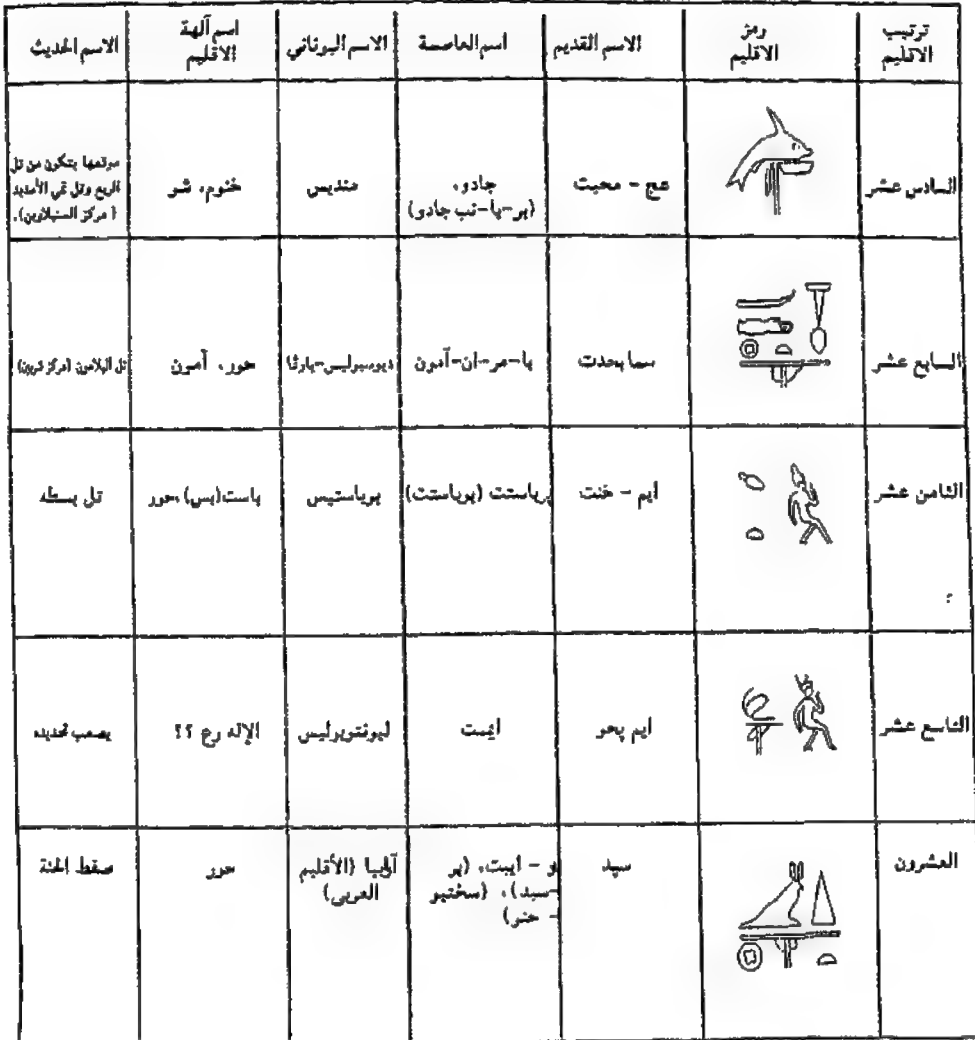 ترتيب الاقليم	رمز الاقليم	الاسم القديم	اسم العاصمة	الاسم اليوناني	اسم آلهة الاقليم	الاسم الحديث
السادس عشر	عج - محيت	جادو، (بر-با-نب جادو)	منديس	خنوم، شو	موقعها يتكون من تل الربع وتل تمي الأمديد (مركز السنبلاوين).
السابع عشر	سما بحدت	با-مر-ان-آمون	ديوسبوليس-بارفا	حور، آمون	تل البلامون (مركز شربين)
الثامن عشر	ايم - خنت	برباستت (بوباستت)	بوباستيس	باست(بس)، حور	تل بسطه
التاسع عشر	ايم پحو	ايمت	ليونتوبوليس	الإله رع ؟؟	يصعب تحديده
العشرون	سپد	و - ايبت، (بر -سبد)، (سختبو - حنو)	آرابيا (الأقليم العربى)	حور	صفط الحنة